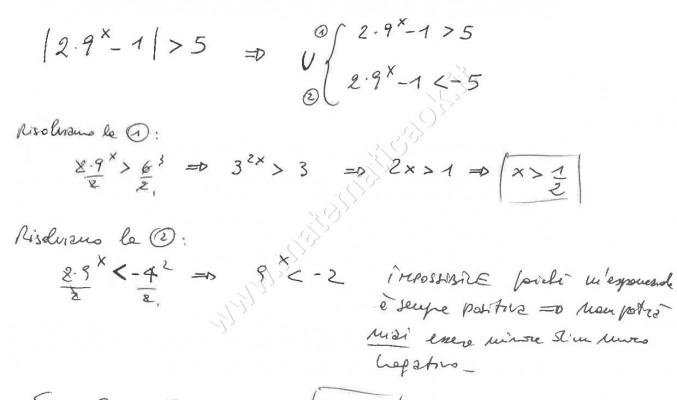 |2·9^x − 1| > 5 ⇒ ∪ { ① 2·9^x − 1 > 5
② 2·9^x − 1 < −5
Risolviamo la ①:
2·9^x/2 > 6^3/2_1 ⇒ 3^{2x} > 3 ⇒ 2x > 1 ⇒ x > 1/2
Risolviamo la ②:
2·9^x/2 < −4^2/2_1 ⇒ 9^x < −2 IMPOSSIBILE poiché un'esponenziale
è sempre positiva ⇒ non potrà
mai essere minore di un numero
negativo_
www.matematicaok.it